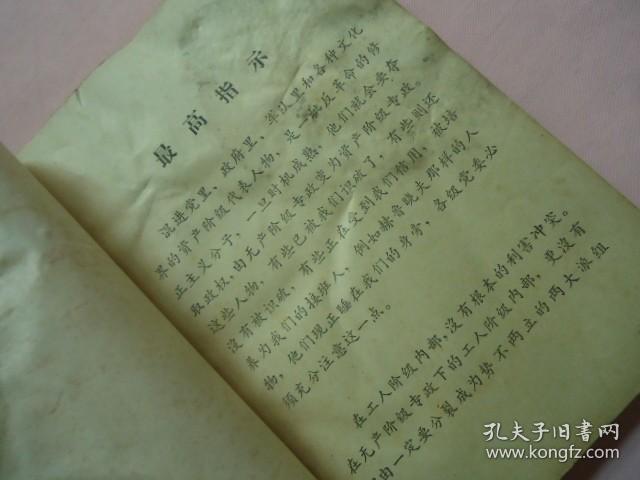 最高指示
混进党里、政府里、军队里和各种文化
界的资产阶级代表人物，是一批反革命的修
正主义分子，一旦时机成熟，他们就会要夺
取政权，由无产阶级专政变为资产阶级专政。
这些人物，有些已被我们识破了，有些则还
沒有被识破，有些正在受到我们信用，被培
养为我们的接班人，例如赫鲁晓夫那样的人
物，他们现正睡在我们的身旁，各级党委必
须充分注意这一点。
在工人阶级内部，沒有根本的利害冲突。
在无产阶级专政下的工人阶级内部，更沒有
由一定要分裂成为势不两立的两大派组
孔夫子旧书网
www.kongfz.com